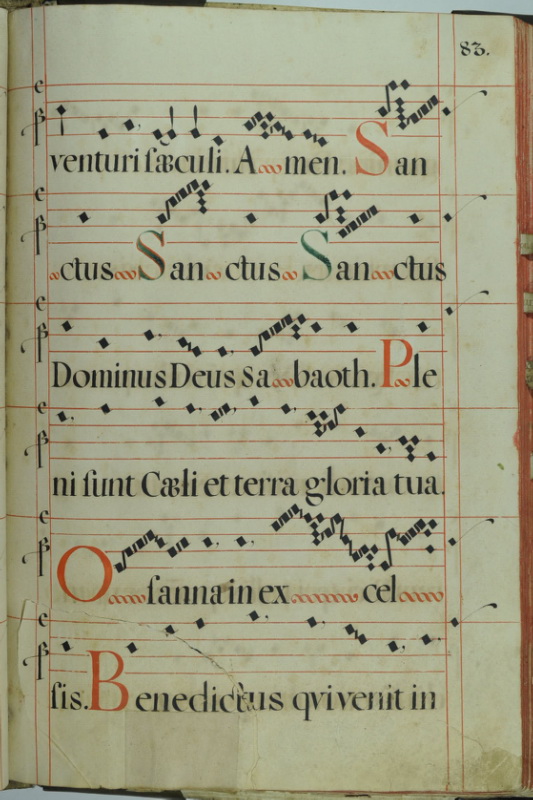 83.
venturi ſæculi. Amen. San
ctus Sanctus Sanctus
Dominus Deus Sabaoth. Ple
ni ſunt Cæli et terra gloria tua.
Oſanna in excel
ſis. Benedictus qvi venit in